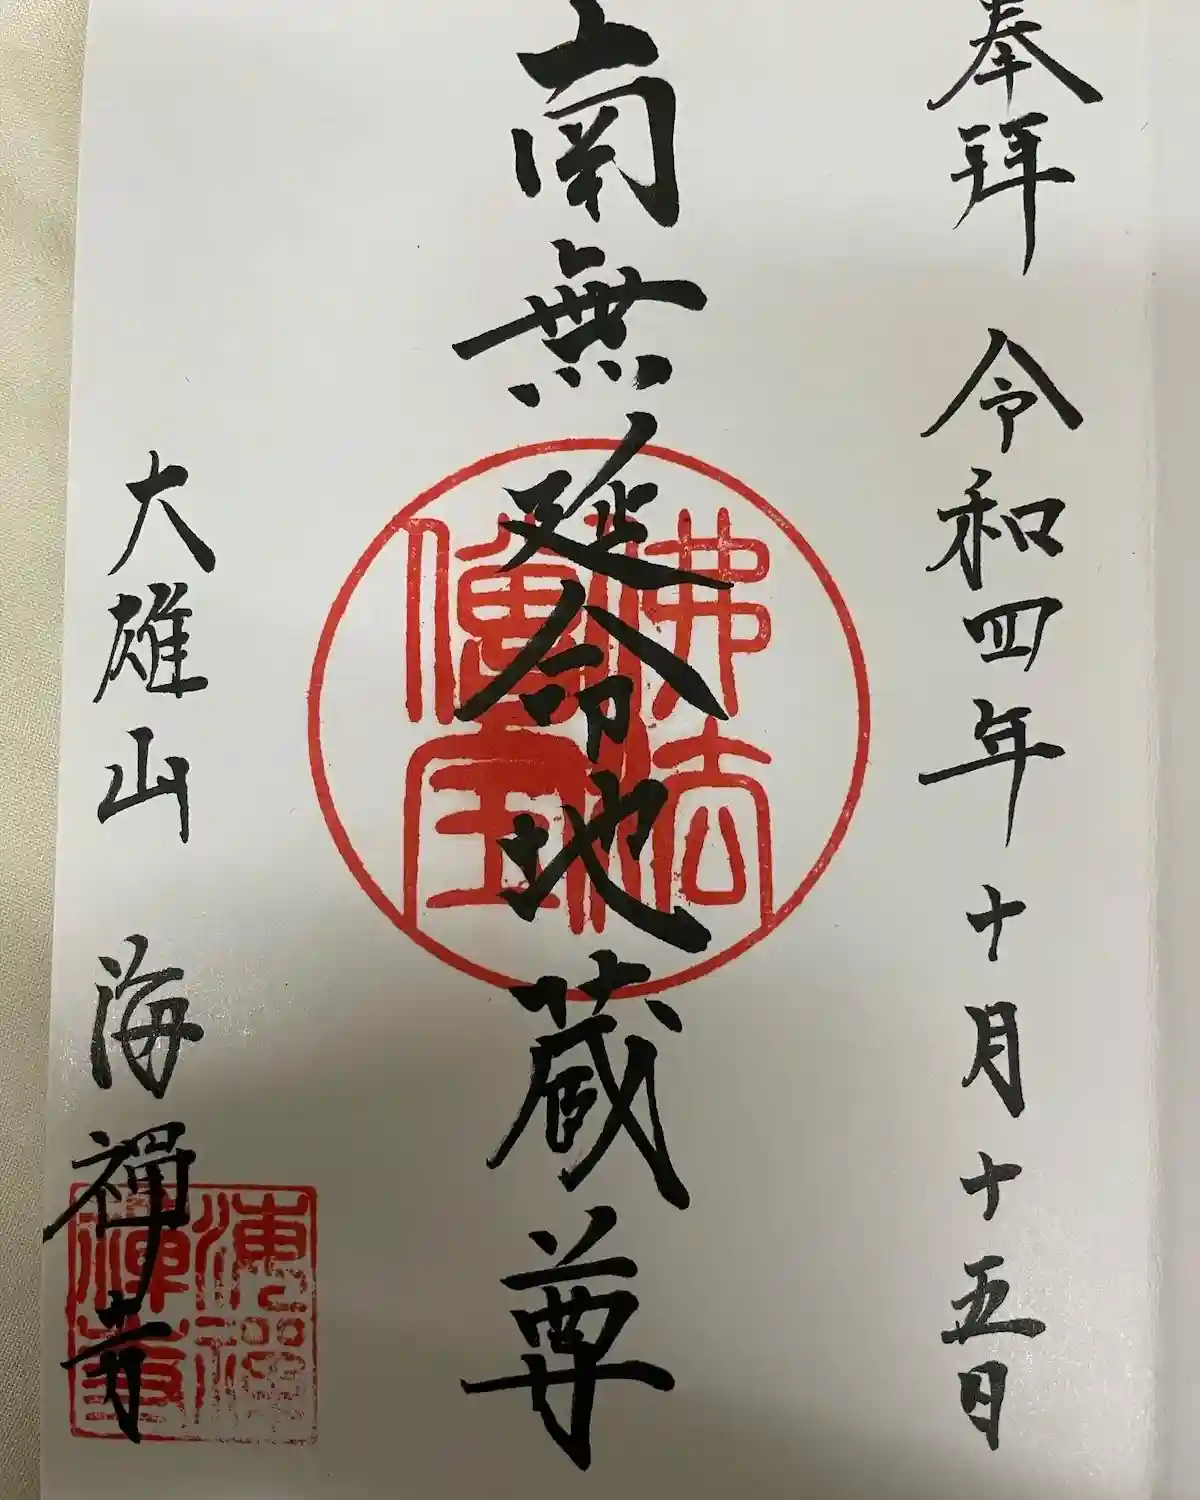 奉拜 令和四年十月十五日
南無延命地蔵尊
佛法僧宝
大雄山 海禪寺